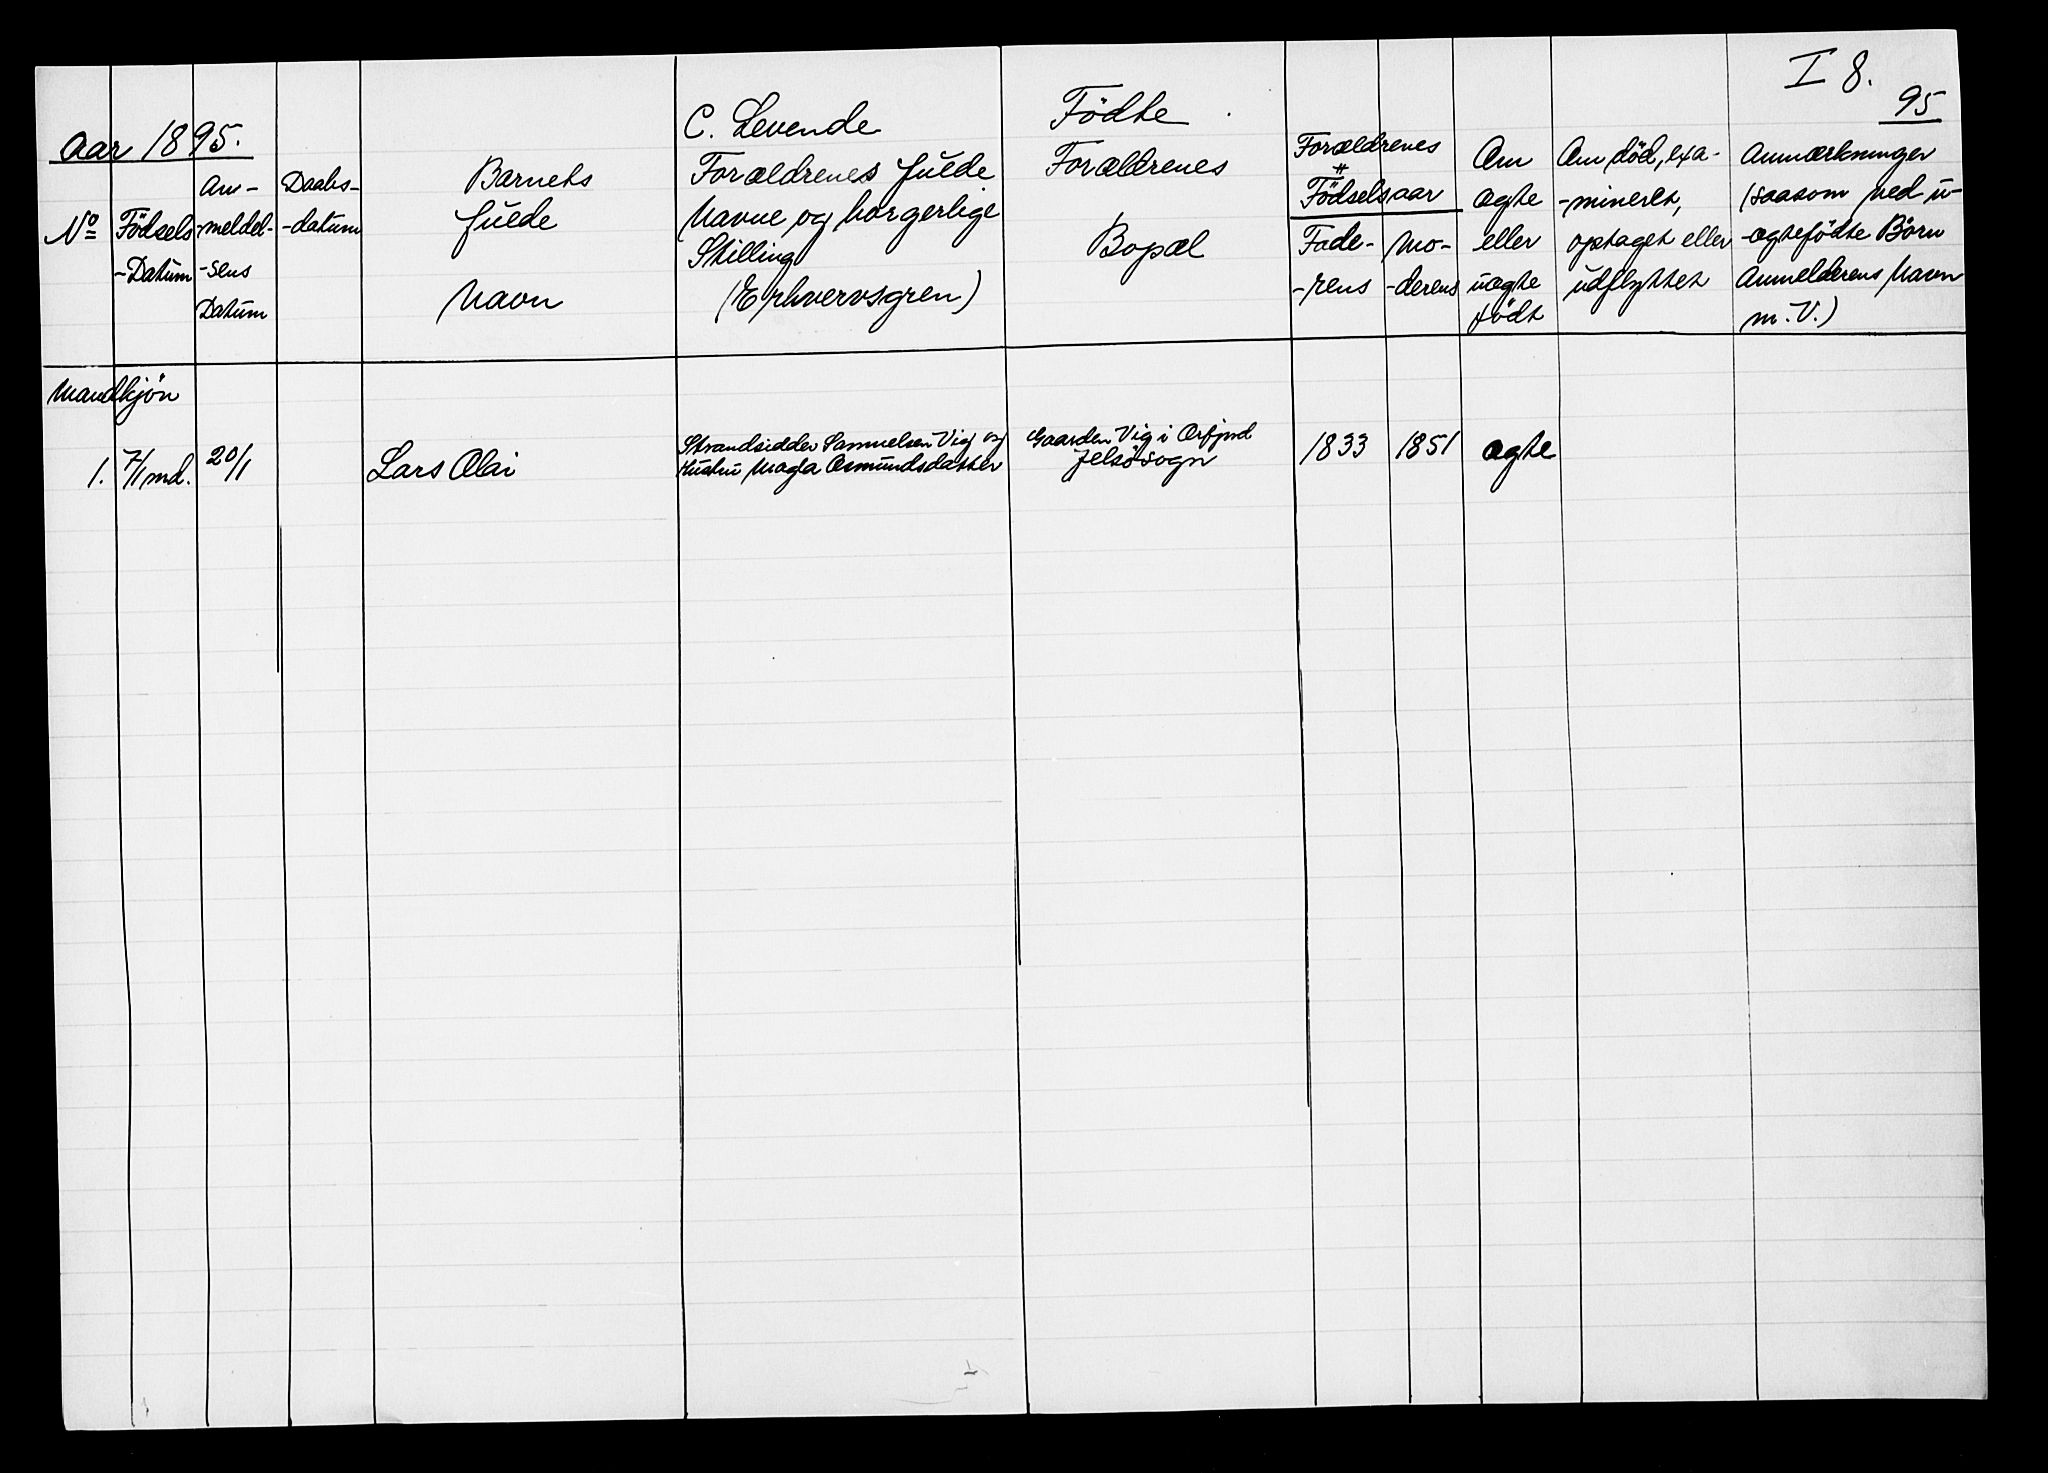 I 8.
95
Aar 1895.
C. Levende Födte
No Födsels-Datum
An-meldel-sens Datum
Daabs-datum
Barnets fulde Navn
Forældrenes fulde
Navne og borgerlige
Stilling
(Erhvervsgren)
Forældrenes
Bopæl
Forældrenes
Födselsaar
Fade-rens
Mo-derens
Om ægte eller uægte födt
Om död, exa-mineret, optaget eller udflyttet
Anmærkninger
(saasom ved u-
-ægtefödte Börn
Anmelderens Navn
m. V.)
Mandkjön
1. 7/1 md. 20/1 Lars Olai
Strandsidder Samuelsen Vig og
Hustru Magla Asmundsdatter
Gaarden Vig i
Jelsö sogn
1833 1851 ægte